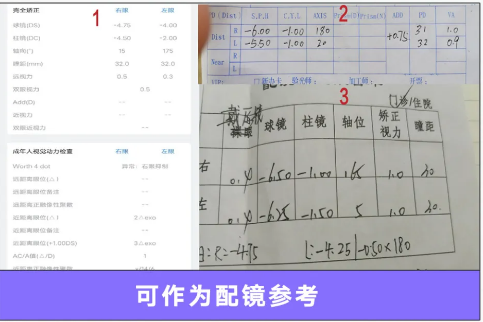 1
完全矫正 右眼 左眼
球镜(DS) -4.75 -4.00
柱镜(DC) -4.50 -2.00
轴向(°) 15 175
瞳距(mm) 32.0 32.0
远视力 0.5 0.3
双眼视力 0.5
Add(D) -- --
近视力 -- --
双眼近视力 --
成年人视觉动力检查 右眼 左眼
Worth 4 dot 异常：右眼抑制
远距离眼位备注 --
远距离眼位(△) 2△exo
近距离眼位备注 --
近距离眼位(+1.00DS) 3△exo
AC/A值(△/D) 1
2
(Dist) S.P.H C.Y.L AXIS ADD PD VA
Dist R -6.00 -1.00 180 +0.75 31 1.0
L -5.50 -1.00 20 32 0.9
Near R
L
3
门诊/住院
裸眼 球镜 柱镜 轴位 矫正视力 瞳距
右 0.4 -6.50 -1.00 165 1.0 30
左 0.4 -6.25 -1.50 5 1.0 30
R:-4.75 L:-4.25/-0.50×180
可作为配镜参考